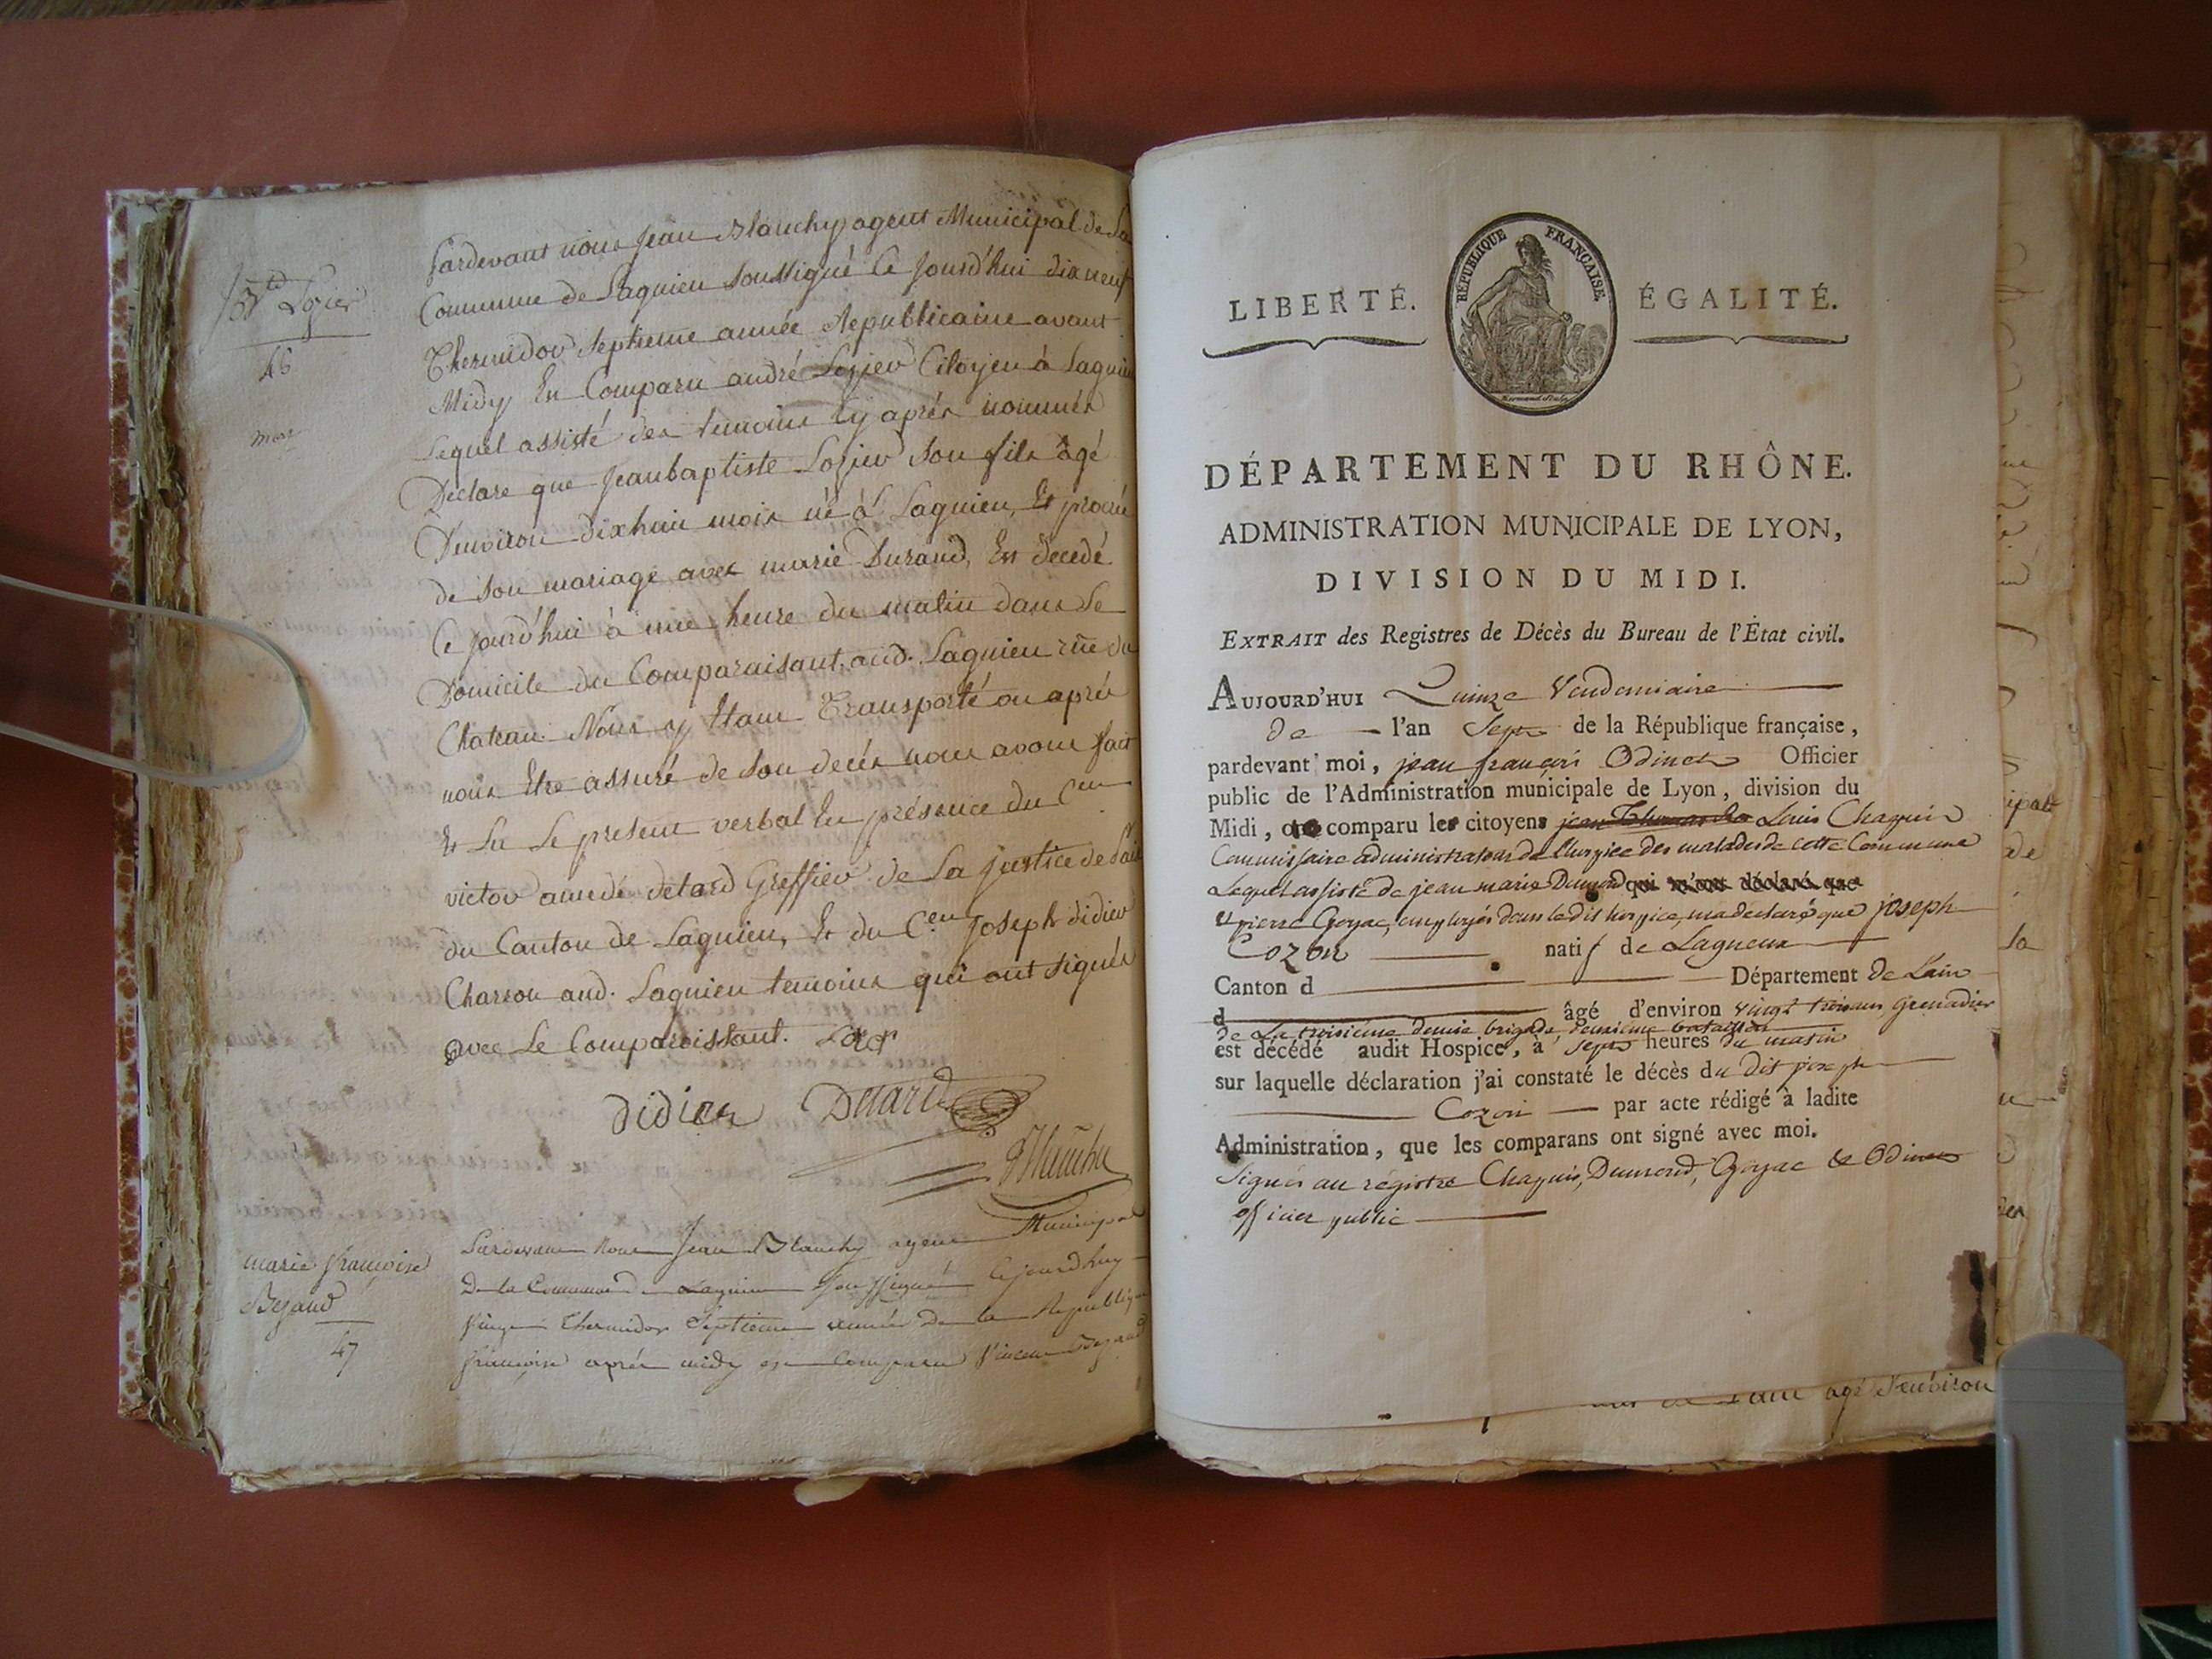 Bte Lozier
46
mort
Pardevant nous Jean Blanchy agent Municipal de La
Commune de Lagnieu soussigné Ce jourd'hui dix neuf
Thermidor septieme année Republicaine avant
Midy Est Comparu andré Lozier Citoyen à Lagnieu
Lequel assisté des temoins Cy après nommés
Déclare que Jeanbaptiste Lozier son fils âgé
D'environ dixhuit mois né à Lagnieu, Et procréé
de son mariage avec marie Durand, Est decedé
Ce jourd'hui à une heure du matin dans Le
Domicile du Comparaisant aud. Lagnieu rüe du
Chateau. Nous y Etant Transporté ou après
nous Etre assuré de son decès nous avons fait
Et Lu Le present verbal En présence du Cen
victor amedé detard Greffier de La justice de Paix
du Canton de Lagnieu, Et du Cen Joseph didier
Charron aud. Lagnieu temoins qui ont signés
avec Le Comparoissant.
didier Detard
Blanchy
marie françoise
Bejaud
47
Pardevant Nous Jean Blanchy agent Municipal
De la Commune De Lagnieu Soussigné Cejourdhuy
Vingt Thermidor Septieme année De la Republique
françoise aprés midy est Comparu Vincent Bejaud
LIBERTÉ. ÉGALITÉ.
RÉPUBLIQUE FRANÇAISE.
DÉPARTEMENT DU RHÔNE.
ADMINISTRATION MUNICIPALE DE LYON,
DIVISION DU MIDI.
EXTRAIT des Registres de Décès du Bureau de l'État civil.
AUJOURD'HUI Quinze Vendemiaire
de l'an Sept de la République française,
pardevant moi, jean françois Odinet Officier
public de l'Administration municipale de Lyon, division du
Midi, comparu les citoyens jean Thomas Louis Chapuis
Commissaire administrateur de l'hospice des malades de cette Commune
Lequel assisté de jean marie Dumond qui m'ont déclaré que
et pierre Goyac, employés dans le dit hospice, m'a declaré que joseph
Cozon natif de Lagneux
Canton d Département de L'ain
d âgé d'environ vingt trois ans, Grenadier
de La troisieme demie brigade, deuxieme bataillon
est décédé audit Hospice, à sept heures du matin
sur laquelle déclaration j'ai constaté le décès du dit joseph
Cozon par acte rédigé à ladite
Administration, que les comparans ont signé avec moi.
Signés au régistre Chapuis, Dumond, Goyac & Odinet
officier public
agé d'environ